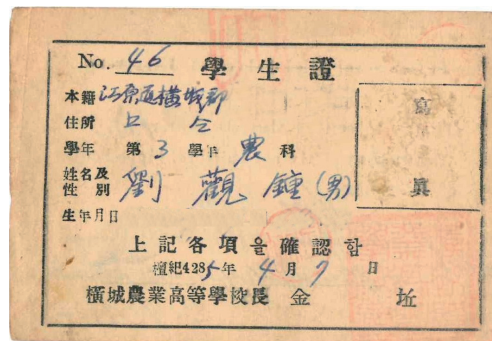 No. 46 學生證
本籍 江原道橫城郡
住所 上仝
學年 第3學年 農科
姓名及性別 劉觀鍾(男)
寫眞
生年月日
上記各項을確認함
檀紀4285年4月7日
橫城農業高等學校長 金 址